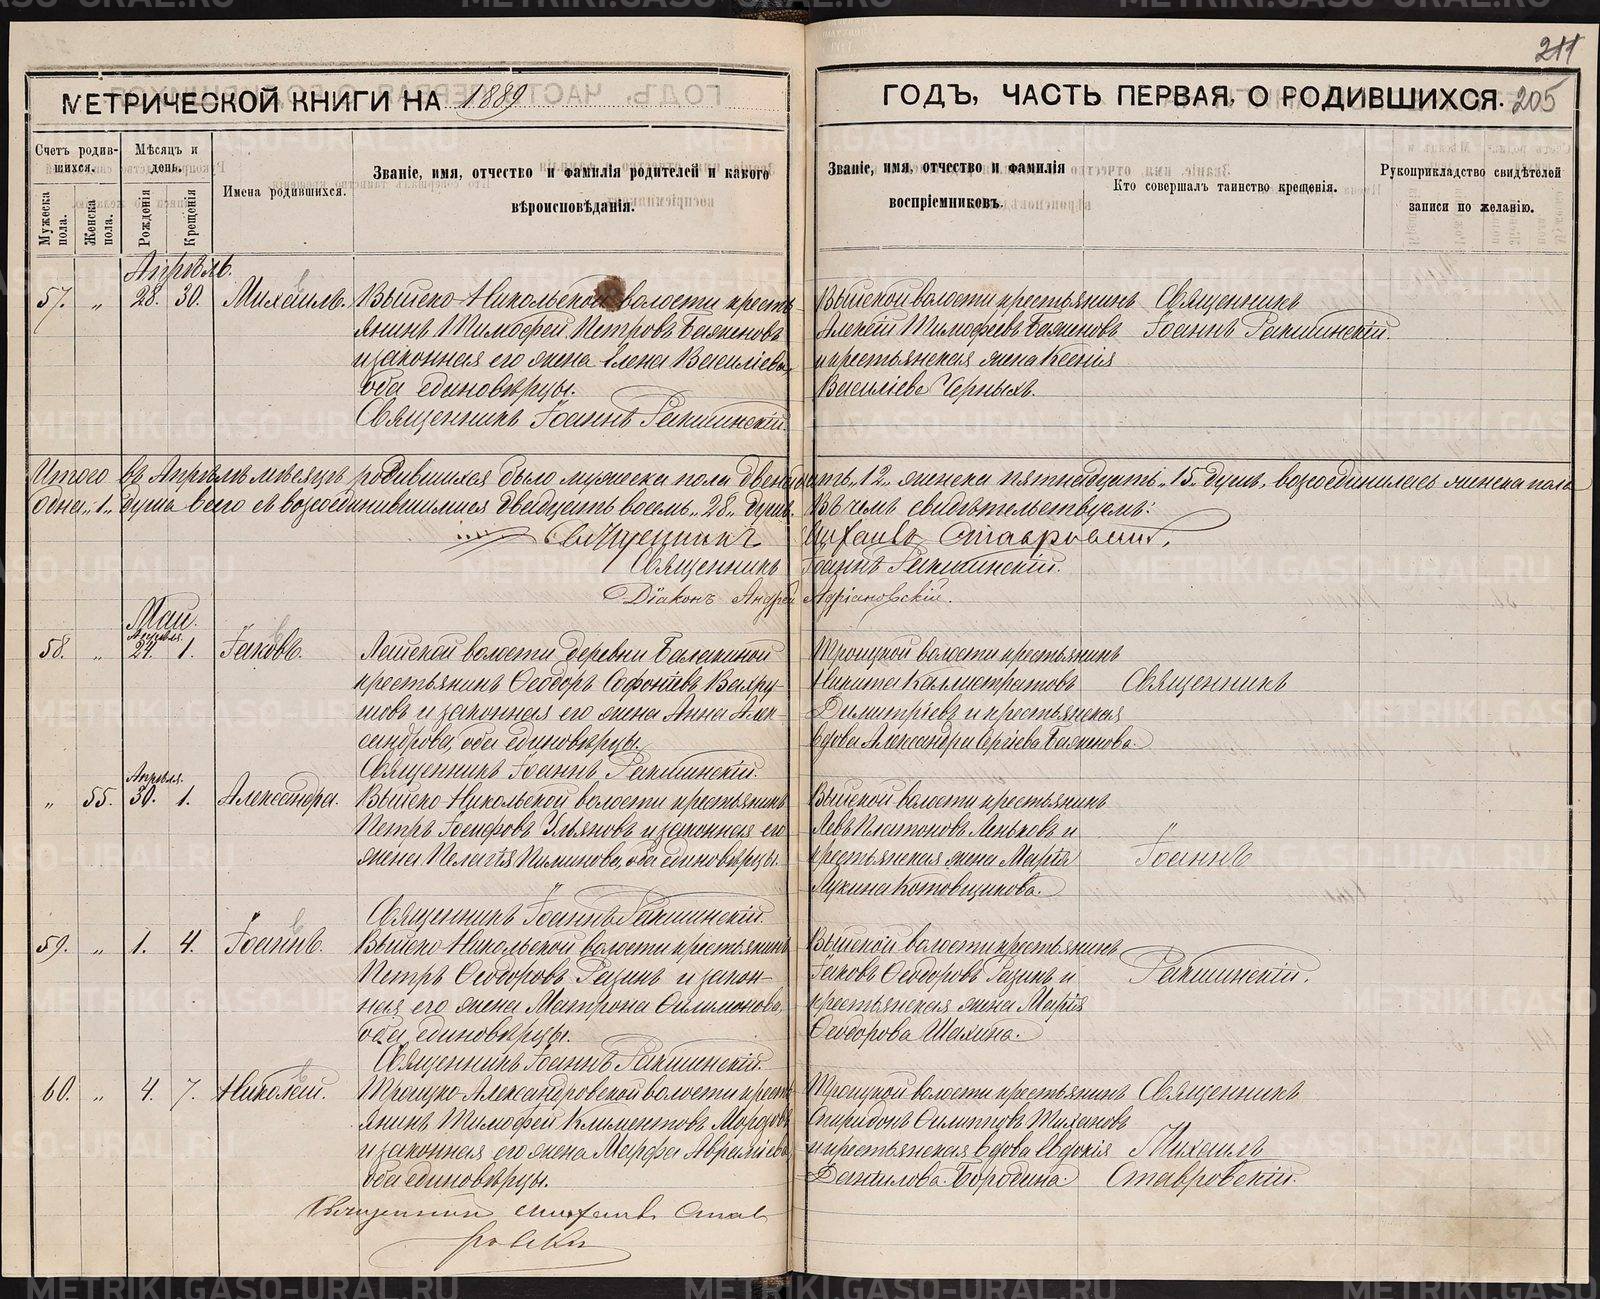 211
МЕТРИЧЕСКОЙ КНИГИ НА 1889
ГОДЪ, ЧАСТЬ ПЕРВАЯ, О РОДИВШИХСЯ. 205
Счетъ родив-
шихся.
Мужеска пола.
Женска пола.
Мѣсяцъ и день.
Рожденія
Крещенія
Имена родившихся.
Званіе, имя, отчество и фамилія родителей и какого
вѣроисповѣданія.
Званіе, имя, отчество и фамилія
воспріемниковъ.
Кто совершалъ таинство крещенія.
Рукоприкладство свидѣтелей
записи по желанію.
Апрѣль.
57. „ 28. 30. Михаилъ. Выйско-Никольской волости кресть-
янинъ Тимофей Петровъ Баженовъ
и законная его жена Елена Василіева,
оба единовѣрцы.
Священникъ Іоаннъ Ракшинскій.
Выйской волости крестьянинъ
Алексій Тимофеевъ Баженовъ
и крестьянская жена Ксенія
Василіева Черныхъ.
Священникъ
Іоаннъ Ракшинскій.
Итого въ Апрѣлѣ мѣсяцѣ родившихся было мужеска пола двенадцать „12„ женска пятнадцать „15„ душъ, возсоединилась женска пола
одна „1„ душа всего съ возсоединившимися двадцать восемь „28„ душъ. Въ чемъ свидѣтельствуемъ:
Священникъ Михаилъ Ставровскій.
Священникъ Іоаннъ Ракшинскій.
Діаконъ Андрей Адріановскій.
Май.
Апрѣля.
58. „ 27. 1. Іаковъ. Лайской волости деревни Балакиной
крестьянинъ Ѳеодоръ Софоніевъ Вахру-
шовъ и законная его жена Анна Алек-
сандрова, оба единовѣрцы.
Священникъ Іоаннъ Ракшинскій.
Троицкой волости крестьянинъ
Никита Каллистратовъ
Димитріевъ и крестьянская
вдова Александра Сергіева Баженова.
Священникъ
Апрѣля.
„ 55. 30. 1. Александра. Выйско-Никольской волости крестьянинъ
Петръ Іосифовъ Ульяновъ и законная его
жена Пелагія Пиминова, оба единовѣрцы.
Священникъ Іоаннъ Ракшинскій.
Выйской волости крестьянинъ
Левъ Платоновъ Леньковъ и
крестьянская жена Марія
Лукина Котовщикова.
„
Іоаннъ
59. „ 1. 4. Іоаннъ. Выйско-Никольской волости крестьянинъ
Петръ Ѳеодоровъ Разинъ и закон-
ная его жена Матрона Филимонова,
оба единовѣрцы.
Священникъ Іоаннъ Ракшинскій.
Выйской волости крестьянинъ
Іаковъ Ѳеодоровъ Разинъ и
крестьянская жена Марія
Ѳеодорова Шахина.
Ракшинскій.
60. „ 4. 7. Николай. Троицко-Александровской волости кресть-
янинъ Тимофей Климентовъ Морозовъ
и законная его жена Марфа Авраміева,
оба единовѣрцы.
Священникъ Михаилъ Став-
ровскій
Троицкой волости крестьянинъ
Спиридонъ Филипповъ Тихановъ
и крестьянская вдова Евдокія
Данилова Бородина.
Священникъ
Михаилъ
Ставровскій.
METRIKI.GASO-URAL.RU